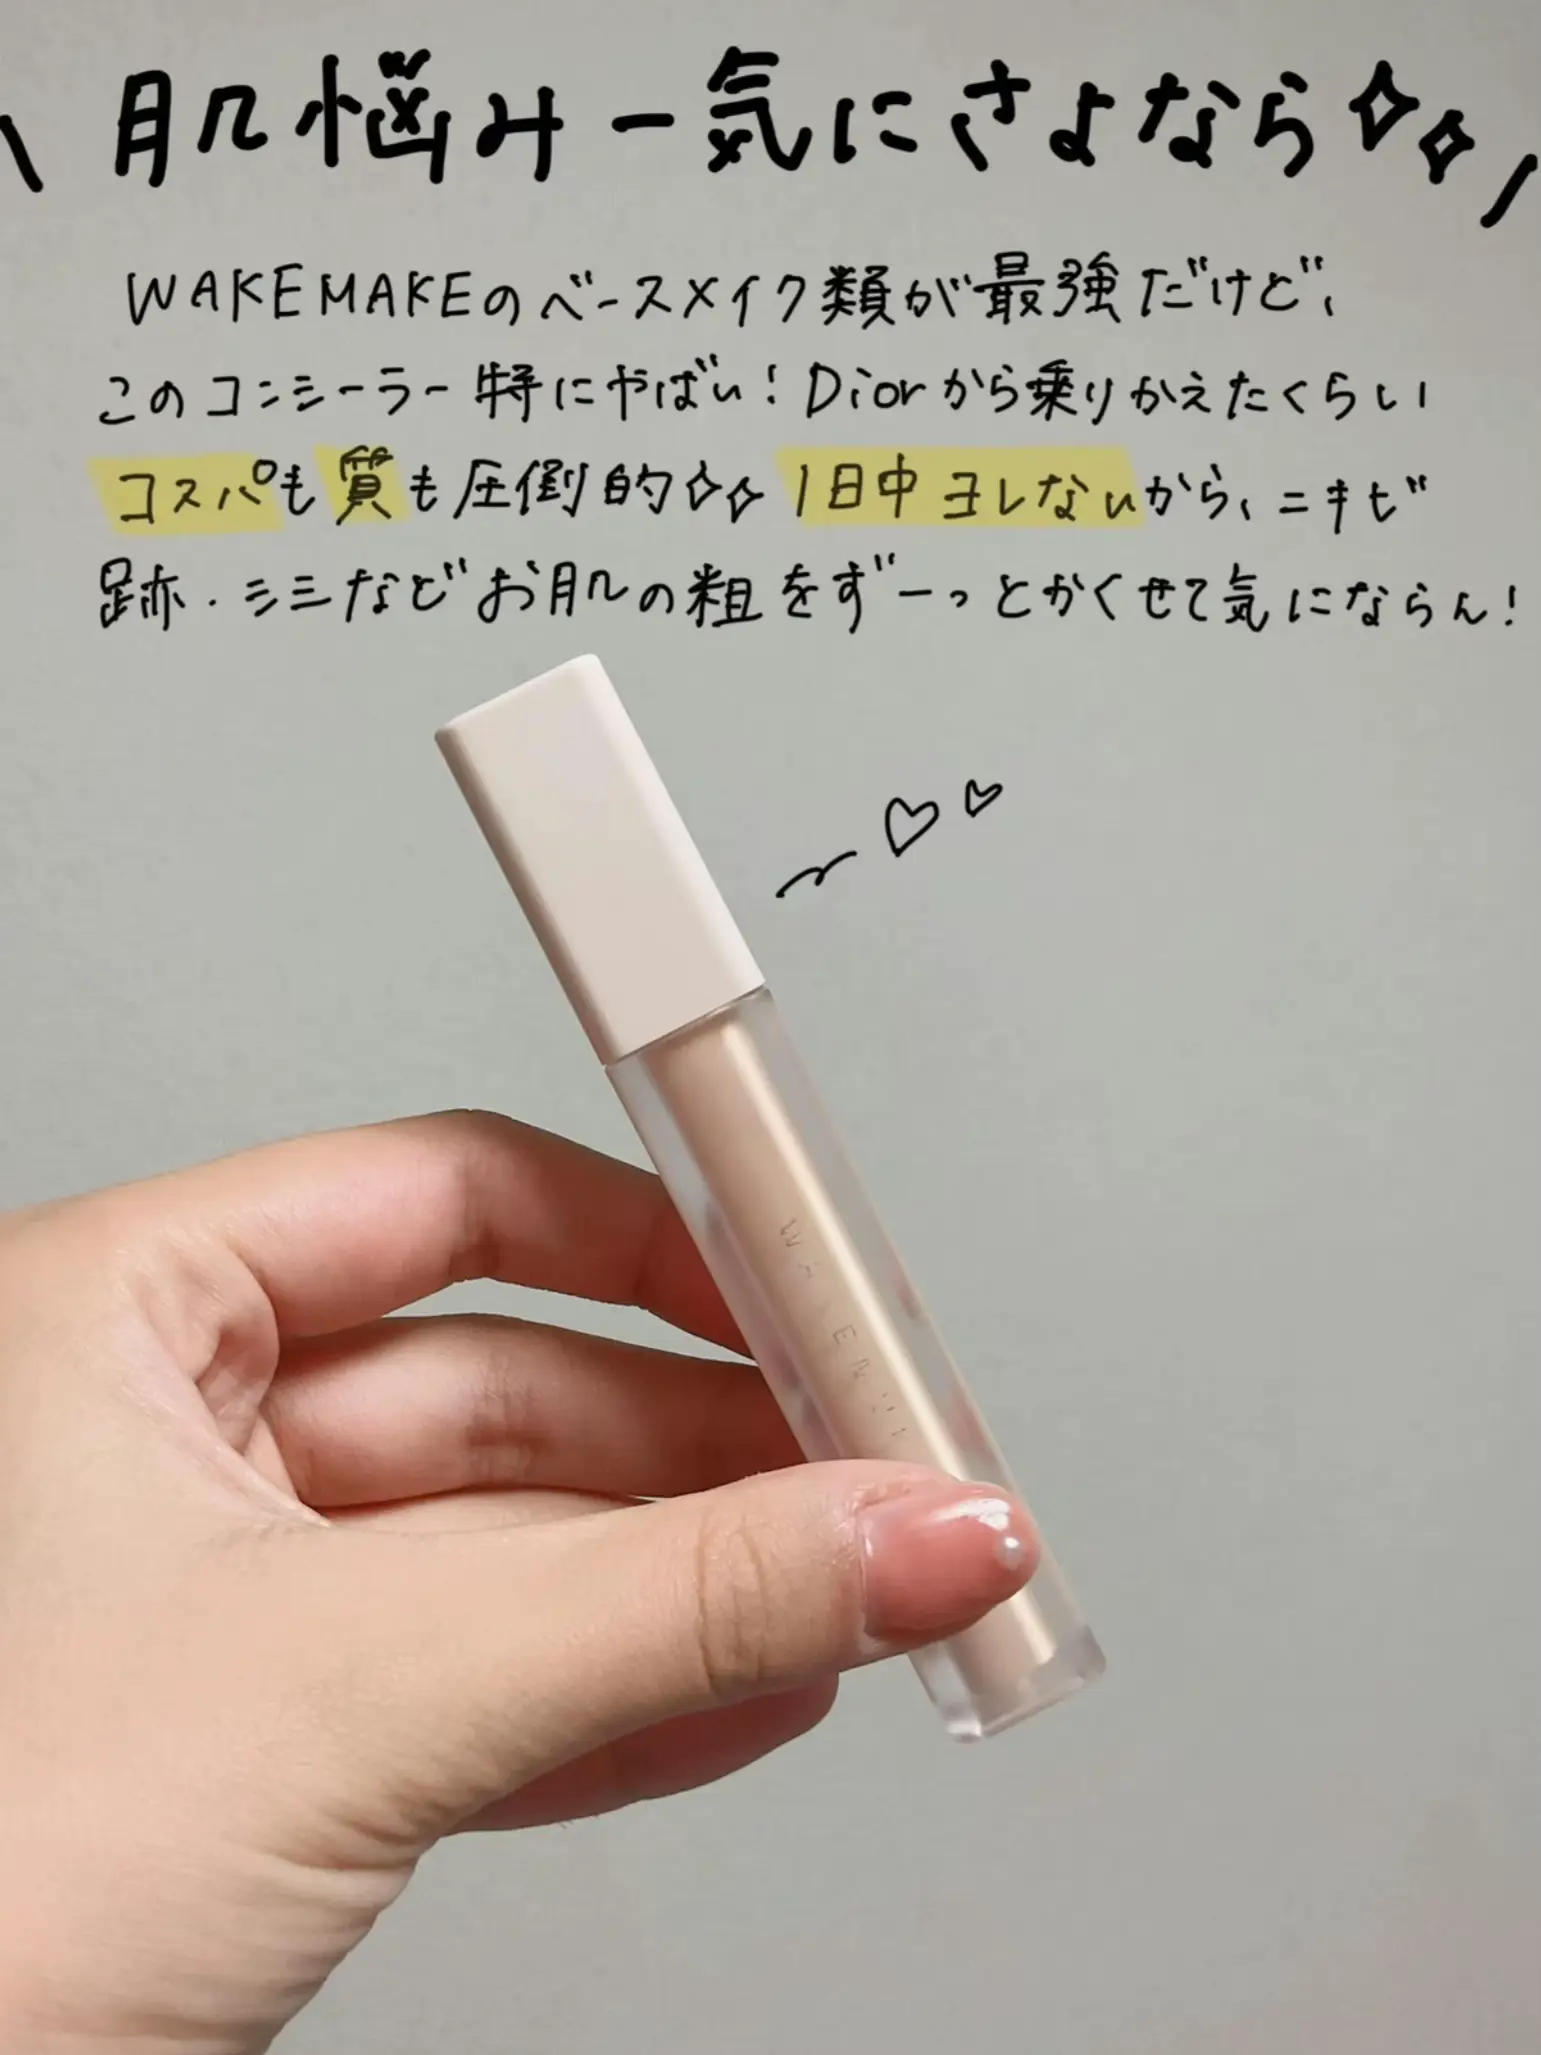 \ 肌悩み一気にさよなら /
WAKEMAKEのベースメイク類が最強だけど、
このコンシーラー特にやばい!Diorから乗りかえたくらい
コスパも質も圧倒的 1日中ヨレないから、ニキビ
跡・シミなどお肌の粗をずーっとかくせて気にならん!
WAKEM